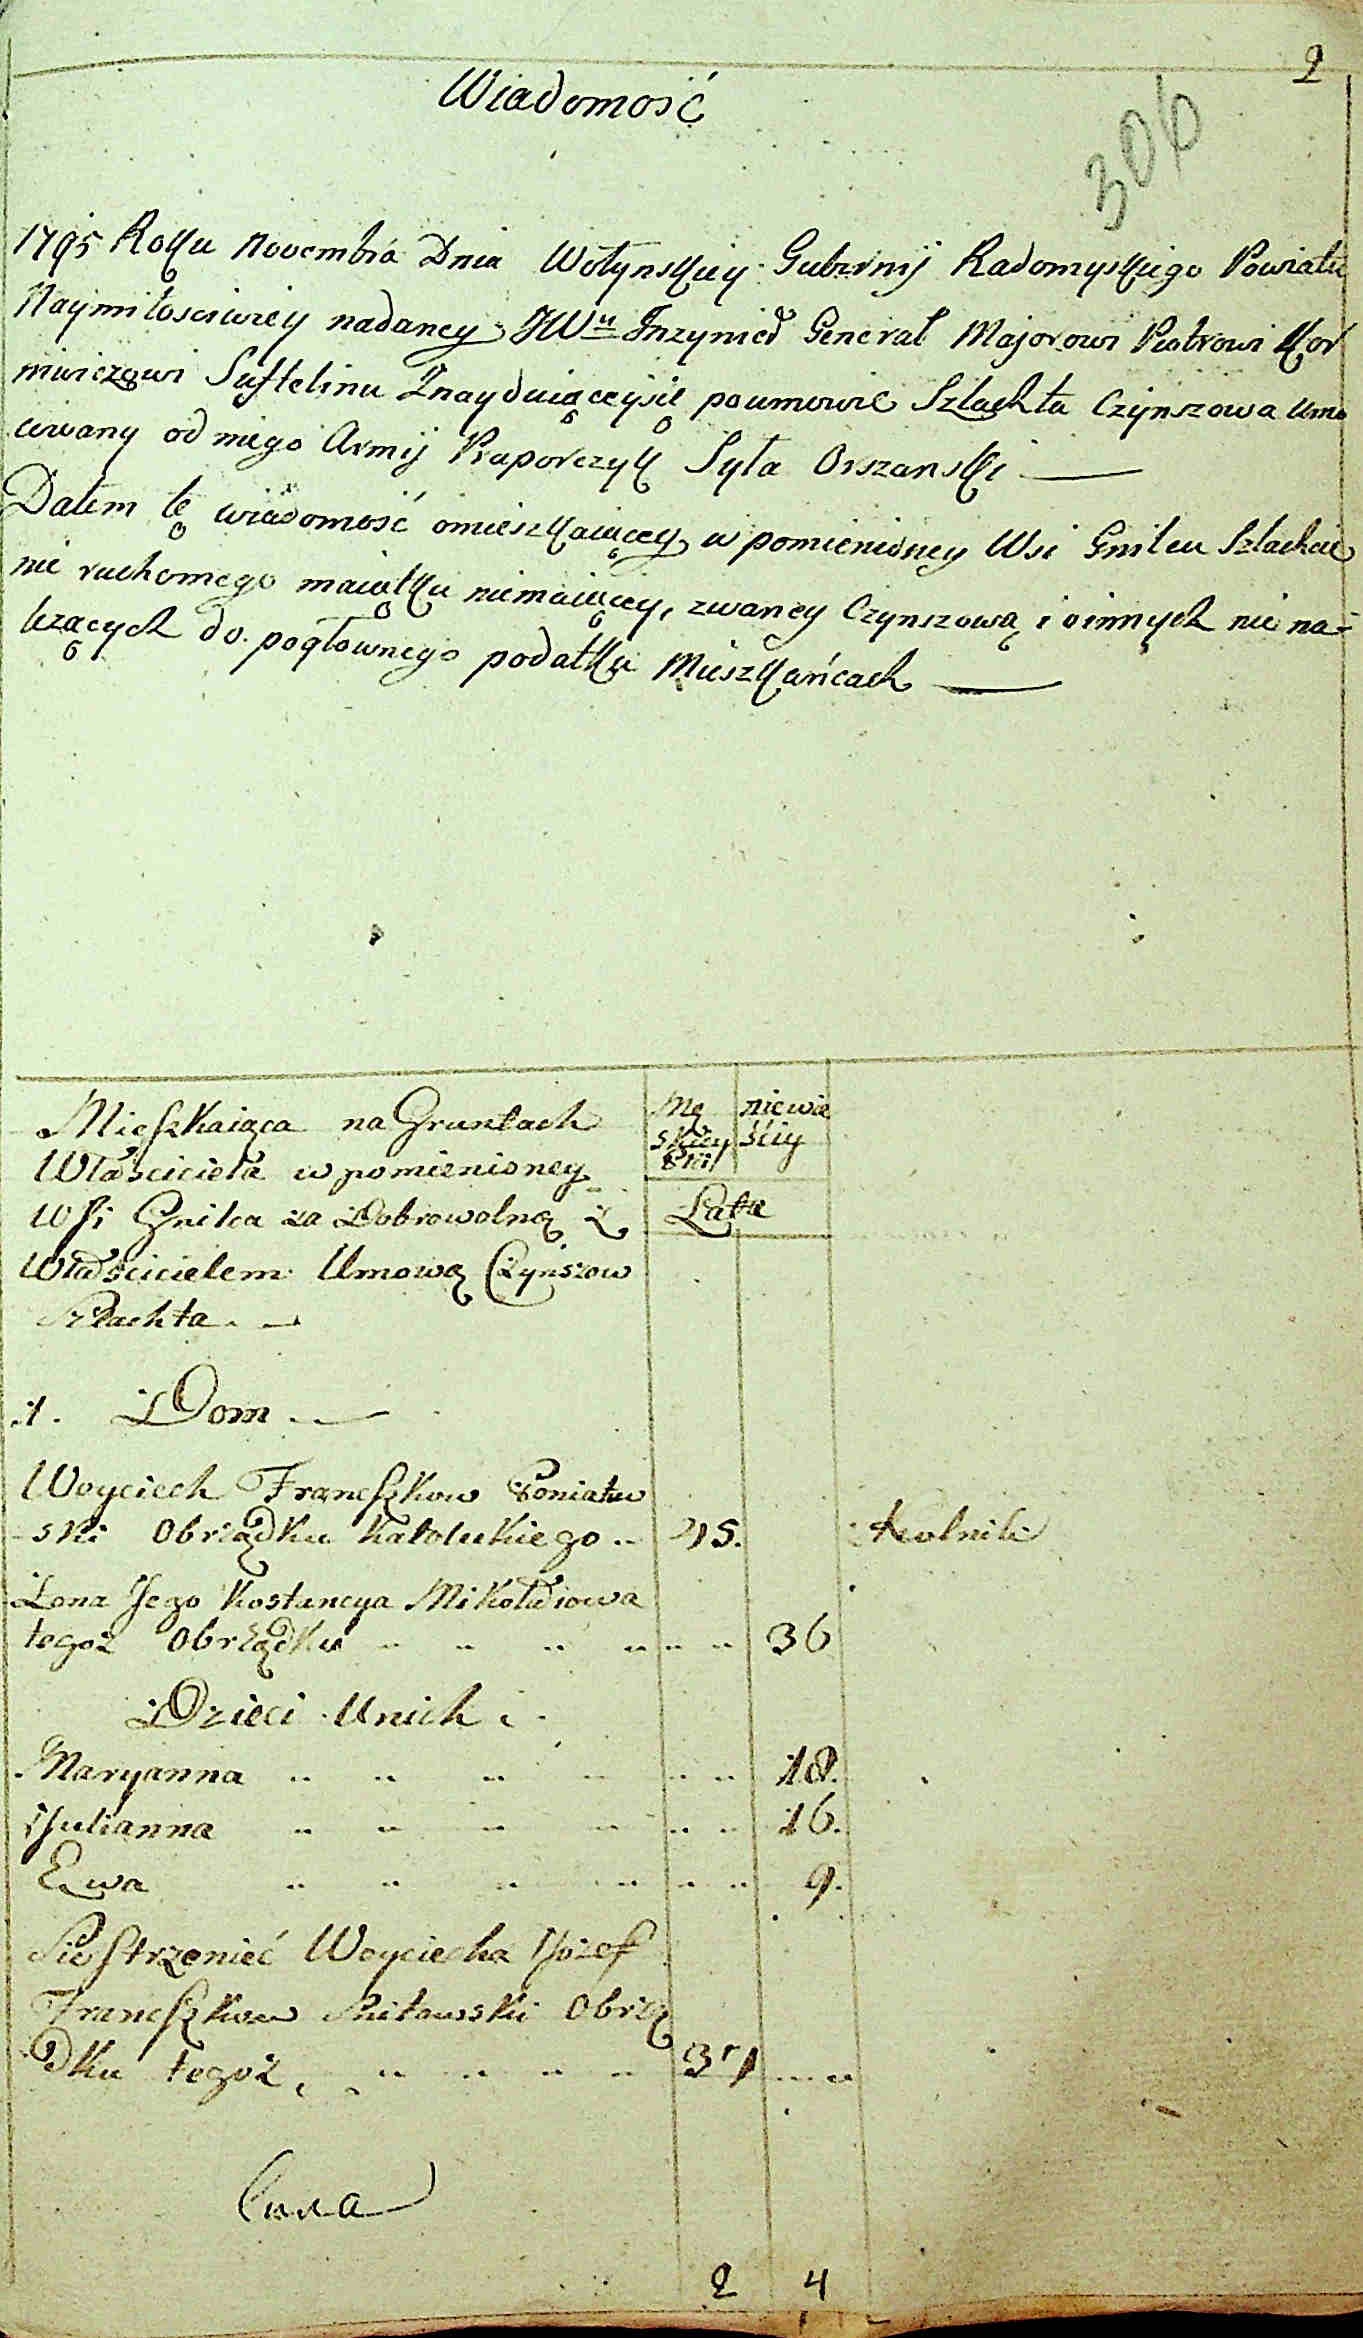 2
Wiadomość
306
1795 Roku Novembra Dnia Wołynskiey Gubernij Radomyskiego Powiatu
Naymiłosciwiey nadaney JWu Inzynier General Majorowi Piotrowi Kor
miwiczowi Suftelinu Znayduiąceysię poumowie Szlachta Czynszowa Umo
ciwany od niego Armij Praporczyk Syła Orszanski
Dałem tę wiadomość omieszkaiącey w pomienioney Wsi Gnilcu Szlachcie
nie ruchomego maiątku niemaiącey, zwaney Czynszową i oinnych nie na=
leżących do pogłownego podatku Mieszkańcach
Mieszkaiąca na Gruntach
Własciciela w pomienioney
Wsi Gnilca za Dobrowolną Z
Właścicielem Umową Czynszow
Szlachta
Mę niewie
skiey ściy
Płci
Lata
1. Dom
Woyciech Franciszkow Poniatw
ski Obrządku Katolickiego 45. Rolnik
Żona Jego Kostancya Mikołaiowa
tegoż Obrządku 36
Dzieci Unich
Maryanna 18.
Julianna 16.
Ewa 9.
Siestrzenieć Woyciecha Jozef
Franciszkow Obrzą
dku tegoż 37
2 4